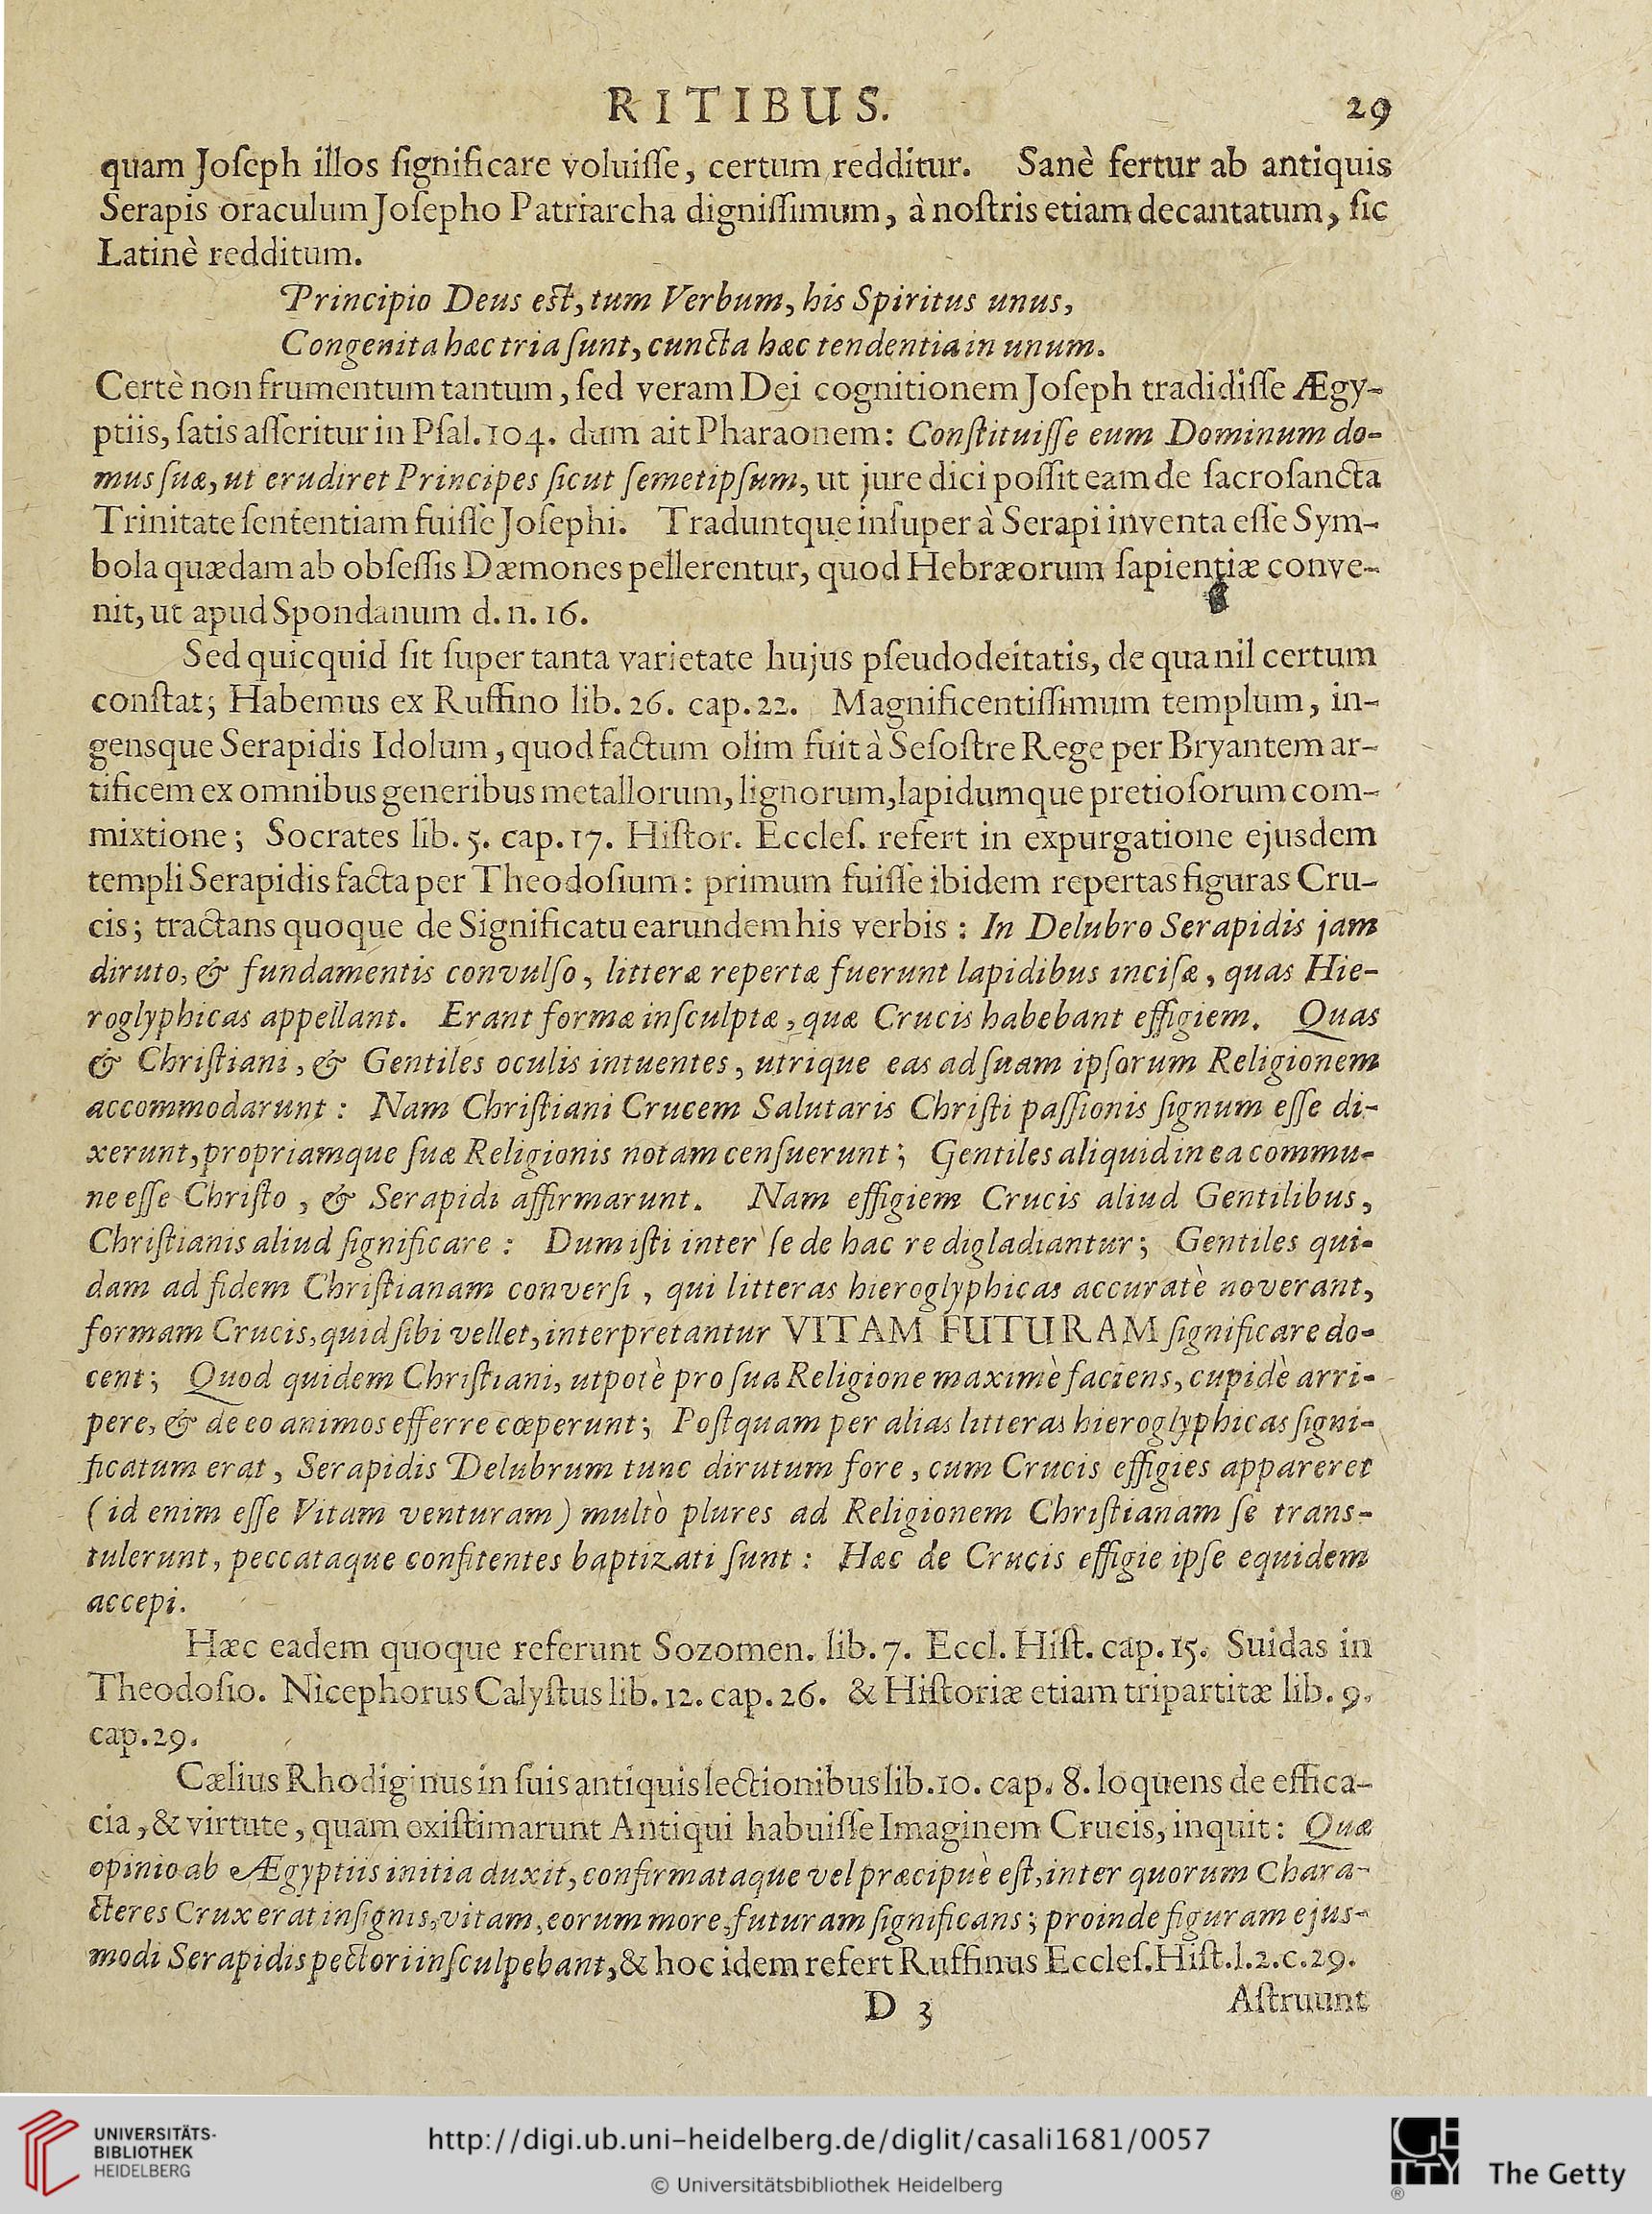 RITIBUS. 29
quam Joſeph illos ſignificare voluiſſe, certum redditur. Sanè fertur ab antiquis
Serapis oraculum Joſepho Patriarcha digniſſimum, à noſtris etiam decantatum, ſic
Latinè redditum.
Principio Deus eſt, tum Verbum, his Spiritus unus,
Congenita hæc tria ſunt, cuncta hæc tendentia in unum.
Certè non frumentum tantum, ſed veram Dei cognitionem Joſeph tradidiſſe Ægy-
ptiis, ſatis aſſeritur in Pſal. 104. dum ait Pharaonem: Conſtituiſſe eum Dominum do-
mus ſuæ, ut erudiret Principes ſicut ſemetipſum, ut jure dici poſſit eam de ſacroſancta
Trinitate ſententiam fuiſſe Joſephi. Traduntque inſuper à Serapi inventa eſſe Sym-
bola quædam ab obſeſſis Dæmones pellerentur, quod Hebræorum ſapientiæ conve-
nit, ut apud Spondanum d. n. 16.
Sed quicquid ſit ſuper tanta varietate hujus pſeudodeitatis, de qua nil certum
conſtat; Habemus ex Ruffino lib. 26. cap. 22. Magnificentiſſimum templum, in-
gensque Serapidis Idolum, quod factum olim fuit à Seſoſtre Rege per Bryantem ar-
tificem ex omnibus generibus metallorum, lignorum, lapidumque pretioſorum com-
mixtione; Socrates lib. 5. cap. 17. Hiſtor. Eccleſ. refert in expurgatione ejusdem
templi Serapidis facta per Theodoſium: primum fuiſſe ibidem repertas figuras Cru-
cis; tractans quoque de Significatu earundem his verbis: In Delubro Serapidis jam
diruto, & fundamentis convulſo, litteræ repertæ fuerunt lapidibus inciſæ, quas Hie-
roglyphicas appellant. Erant formæ inſculptæ, quæ Crucis habebant effigiem. Quas
& Chriſtiani, & Gentiles oculis intuentes, utrique eas ad ſuam ipſorum Religionem
accommodarunt: Nam Chriſtiani Crucem Salutaris Chriſti paſſionis ſignum eſſe di-
xerunt, propriamque ſuæ Religionis notam cenſuerunt; Gentiles aliquid in ea commu-
ne eſſe Chriſto, & Serapidi affirmarunt. Nam effigiem Crucis aliud Gentilibus,
Chriſtianis aliud ſignificare: Dum iſti inter ſe de hac re digladiantur; Gentiles qui-
dam ad fidem Chriſtianam converſi, qui litteras hieroglyphicas accuratè noverant,
formam Crucis, quid ſibi vellet, interpretantur VITAM FUTURAM ſignificare do-
cent; Quod quidem Chriſtiani, utpotè pro ſua Religione maximè faciens, cupidè arri-
pere, & de eo animos efferre cœperunt; Poſtquam per alias litteras hieroglyphicas ſigni-
ficatum erat, Serapidis Delubrum tunc dirutum fore, cum Crucis effigies appareret
(id enim eſſe Vitam venturam) multò plures ad Religionem Chriſtianam ſe trans-
tulerunt, peccataque confitentes baptizati ſunt: Hæc de Crucis effigie ipſe equidem
accepi.
Hæc eadem quoque referunt Sozomen. lib. 7. Eccl. Hiſt. cap. 15. Suidas in
Theodoſio. Nicephorus Calyſtus lib. 12. cap. 26. & Hiſtoriæ etiam tripartitæ lib. 9.
cap. 29.
Cælius Rhodiginus in ſuis antiquis lectionibus lib. 10. cap. 8. loquens de effica-
cia, & virtute, quam exiſtimarunt Antiqui habuiſſe Imaginem Crucis, inquit: Quæ
opinio ab Ægyptiis initia duxit, confirmataque vel præcipuè eſt, inter quorum Chara-
cteres Crux erat inſignis, vitam, eorum more, futuram ſignificans; proinde figuram ejus-
modi Serapidis pectori inſculpebant, & hoc idem refert Ruffinus Eccleſ. Hiſt. l. 2. c. 29.
D 3 Aſtruunt
UNIVERSITÄTS-
BIBLIOTHEK
HEIDELBERG
http://digi.ub.uni-heidelberg.de/diglit/casali1681/0057
© Universitätsbibliothek Heidelberg
GETTY
®
The Getty